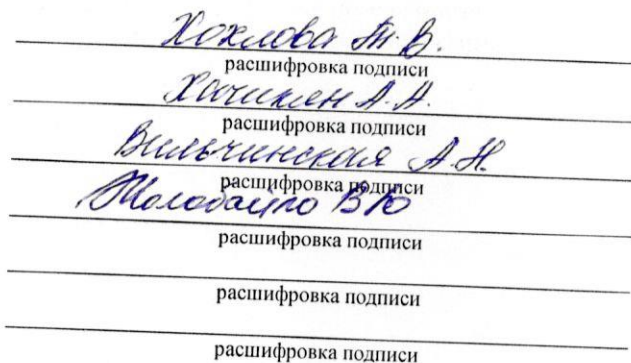 Хохлова Т. В.
расшифровка подписи
Хачикян А. А.
расшифровка подписи
Вильчинская А. Н.
расшифровка подписи
В Ю
расшифровка подписи
расшифровка подписи
расшифровка подписи